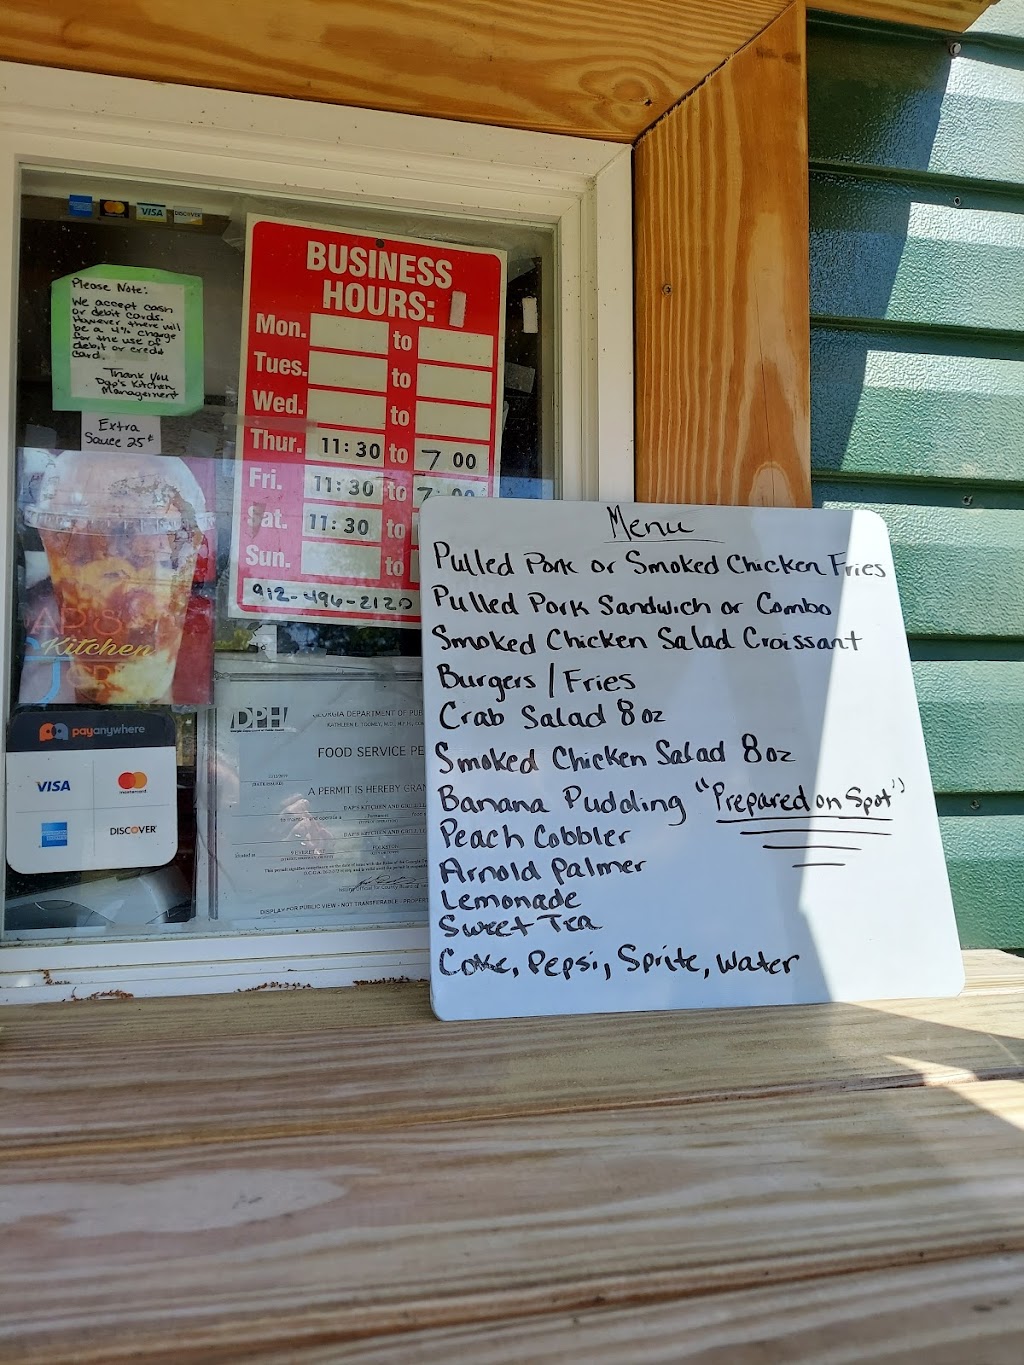 VISA
DISCOVER
Please Note:
We accept cash
or debit cards.
However there will
be a 4% charge
for the use of
debit or credit
card.
Thank you
Dap's Kitchen
Management
Extra
Sauce 25¢
Kitchen
payanywhere
VISA
mastercard
DISCOVER
BUSINESS
HOURS:
Mon. to
Tues. to
Wed. to
Thur. 11:30 to 7 00
Fri. 11:30 to 7 00
Sat. 11:30 to
Sun. to
912-496-2120
DPH
GEORGIA DEPARTMENT OF PUB
FOOD SERVICE PE
A PERMIT IS HEREBY GRAN
DAP'S KITCHEN AND GRILL
DISPLAY FOR PUBLIC VIEW - NOT TRANSFERABLE - PROPERT
Menu
Pulled Pork or Smoked Chicken Fries
Pulled Pork Sandwich or Combo
Smoked Chicken Salad Croissant
Burgers / Fries
Crab Salad 8oz
Smoked Chicken Salad 8oz
Banana Pudding "Prepared on Spot"
Peach Cobbler
Arnold Palmer
Lemonade
Sweet Tea
Coke, Pepsi, Sprite, Water